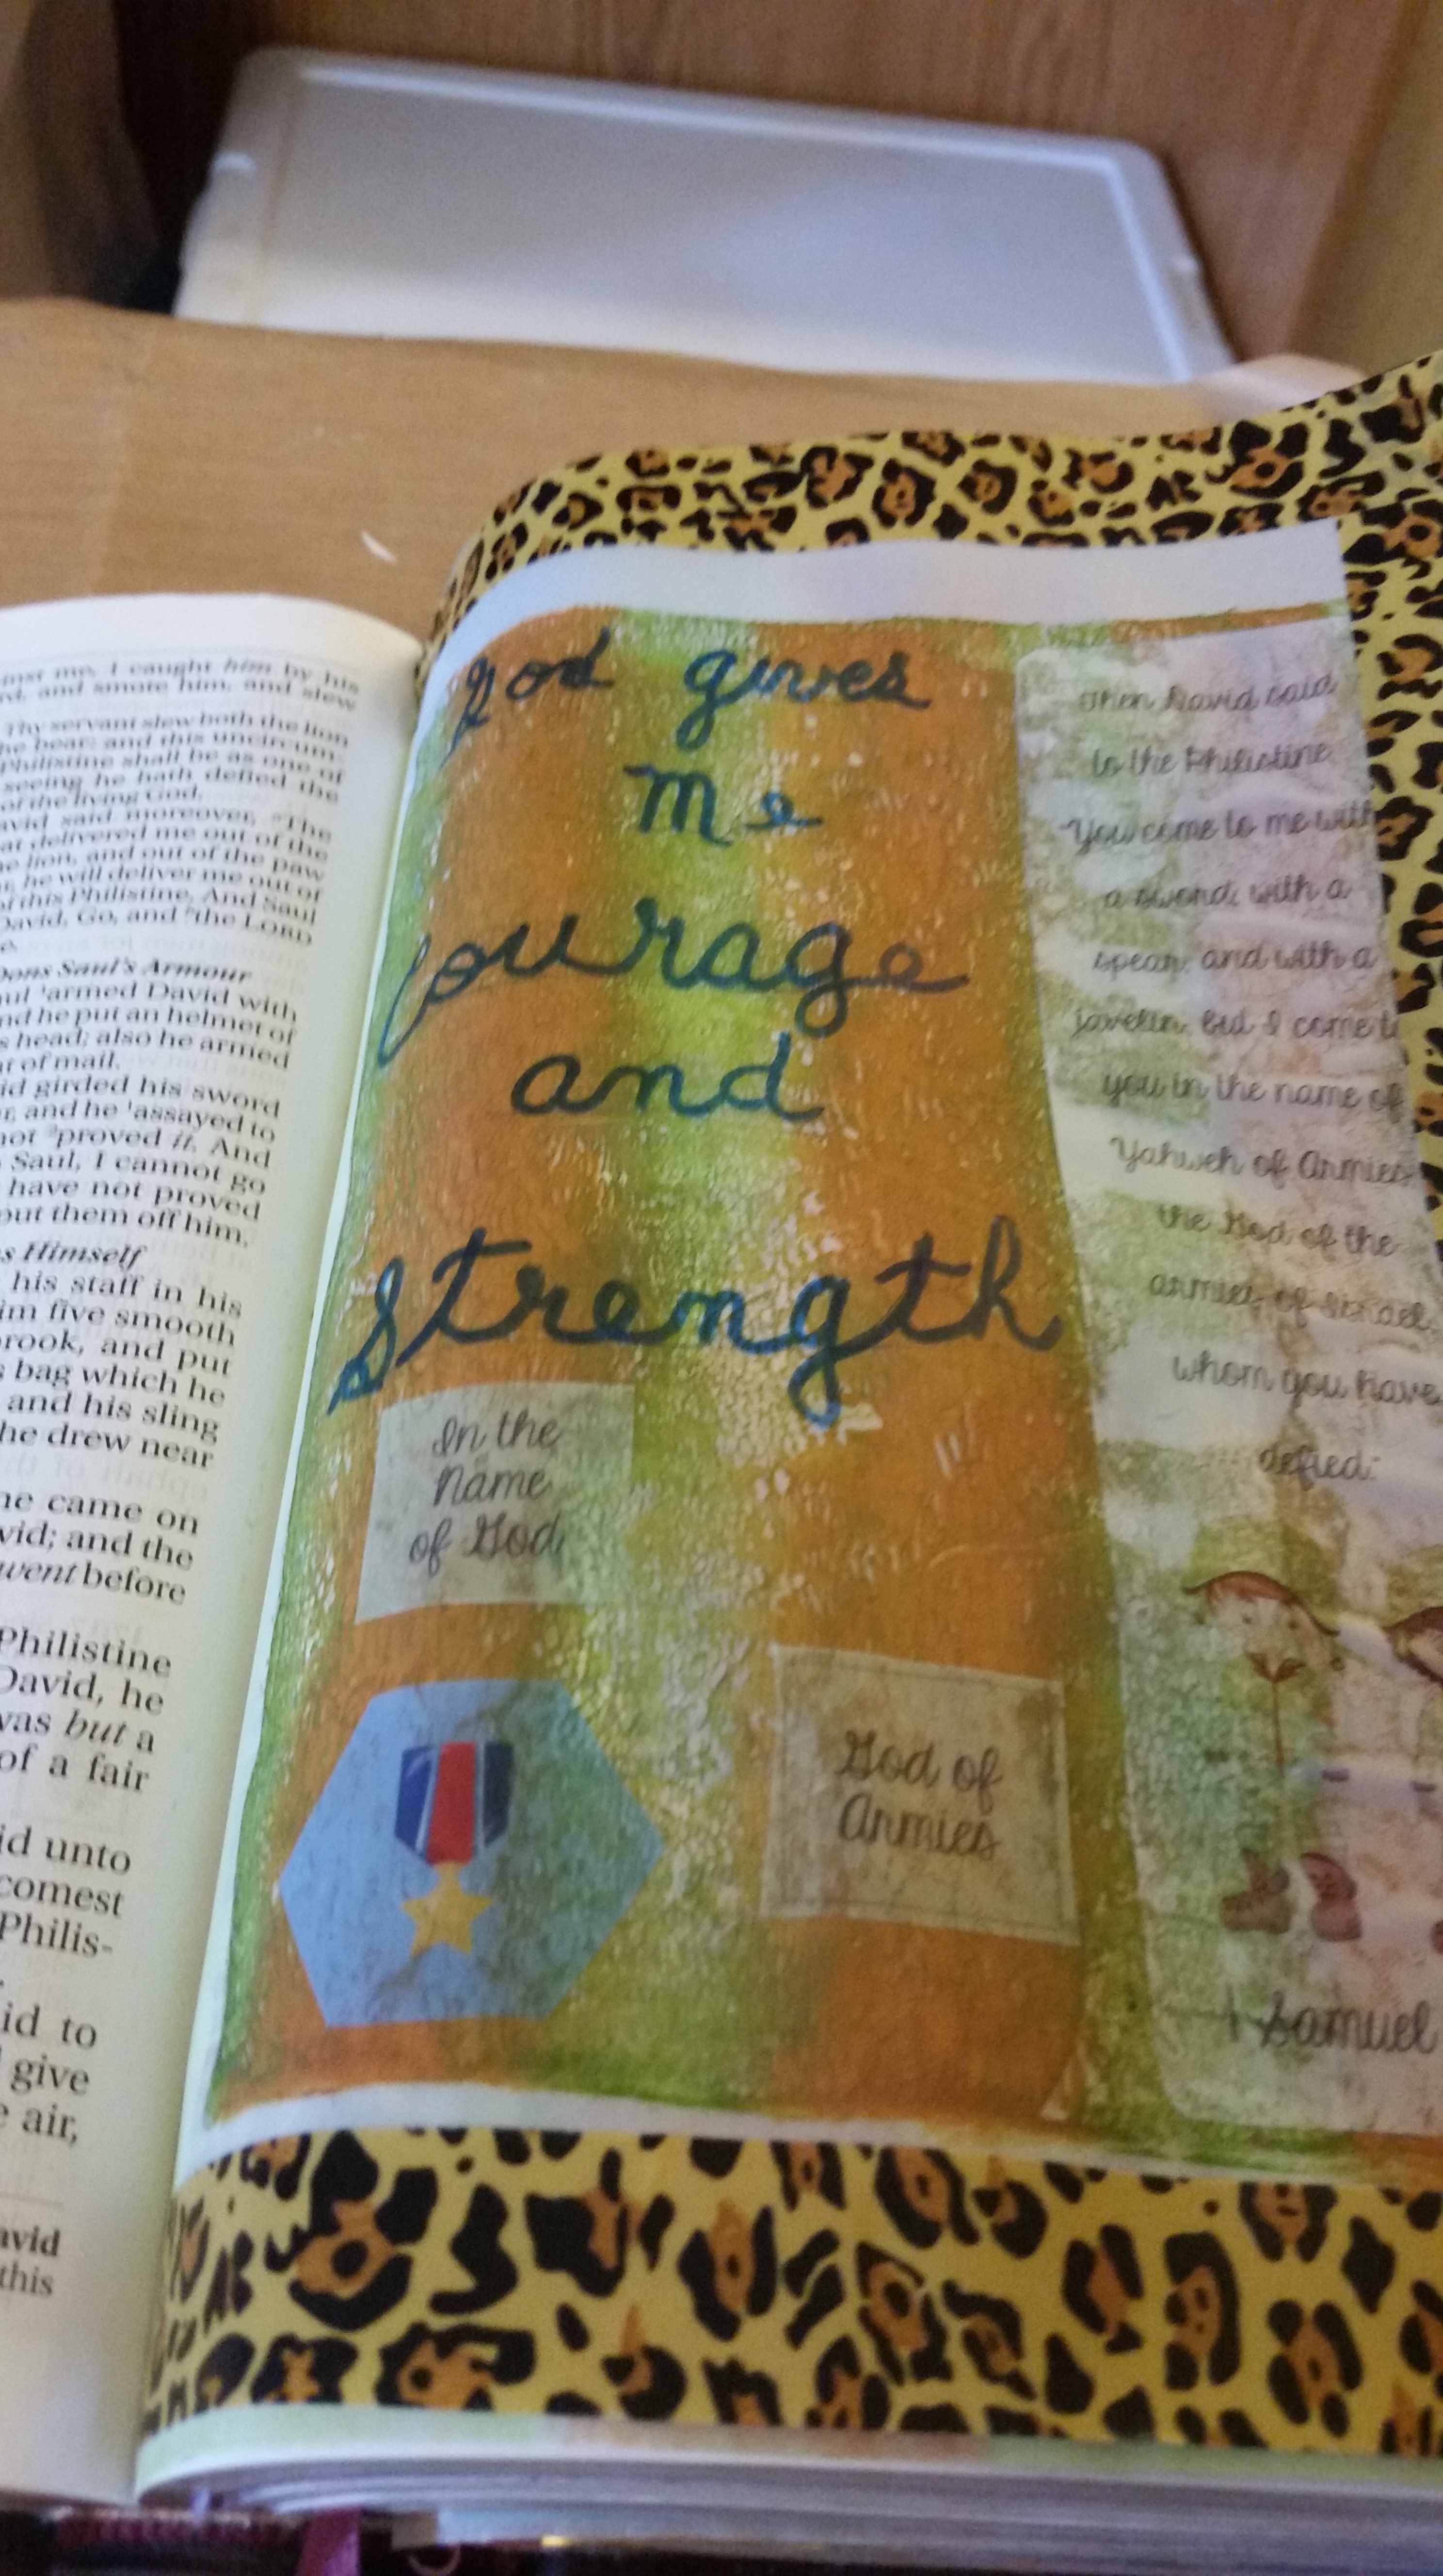 me, I caught him by his
and smote him, and slew
Thy servant slew both the lion
bear: and this uncircum-
Philistine shall be as one of
seeing he hath defied the
of the living God.
said moreover, The
delivered me out of the
lion, and out of the paw
he will deliver me out of
of this Philistine. And Saul
David, Go, and the LORD
Saul's Armour
armed David with
and he put an helmet of
head; also he armed
of mail.
girded his sword
and he assayed to
proved it. And
Saul, I cannot go
have not proved
put them off him.
Himself
his staff in his
five smooth
brook, and put
bag which he
and his sling
he drew near
came on
and the
went before
Philistine
David, he
was but a
of a fair
unto
comest
Philis-
to
give
air,
this
God gives
Me
Courage
and
Strength
In the
Name
of God
God of
Armies
Then David said
to the Philistine
"You come to me with
a sword, with a
spear, and with a
javelin; but I come to
you in the name of
Yahweh of Armies
the God of the
armies of Israel,
whom you have
defied:
1 Samuel